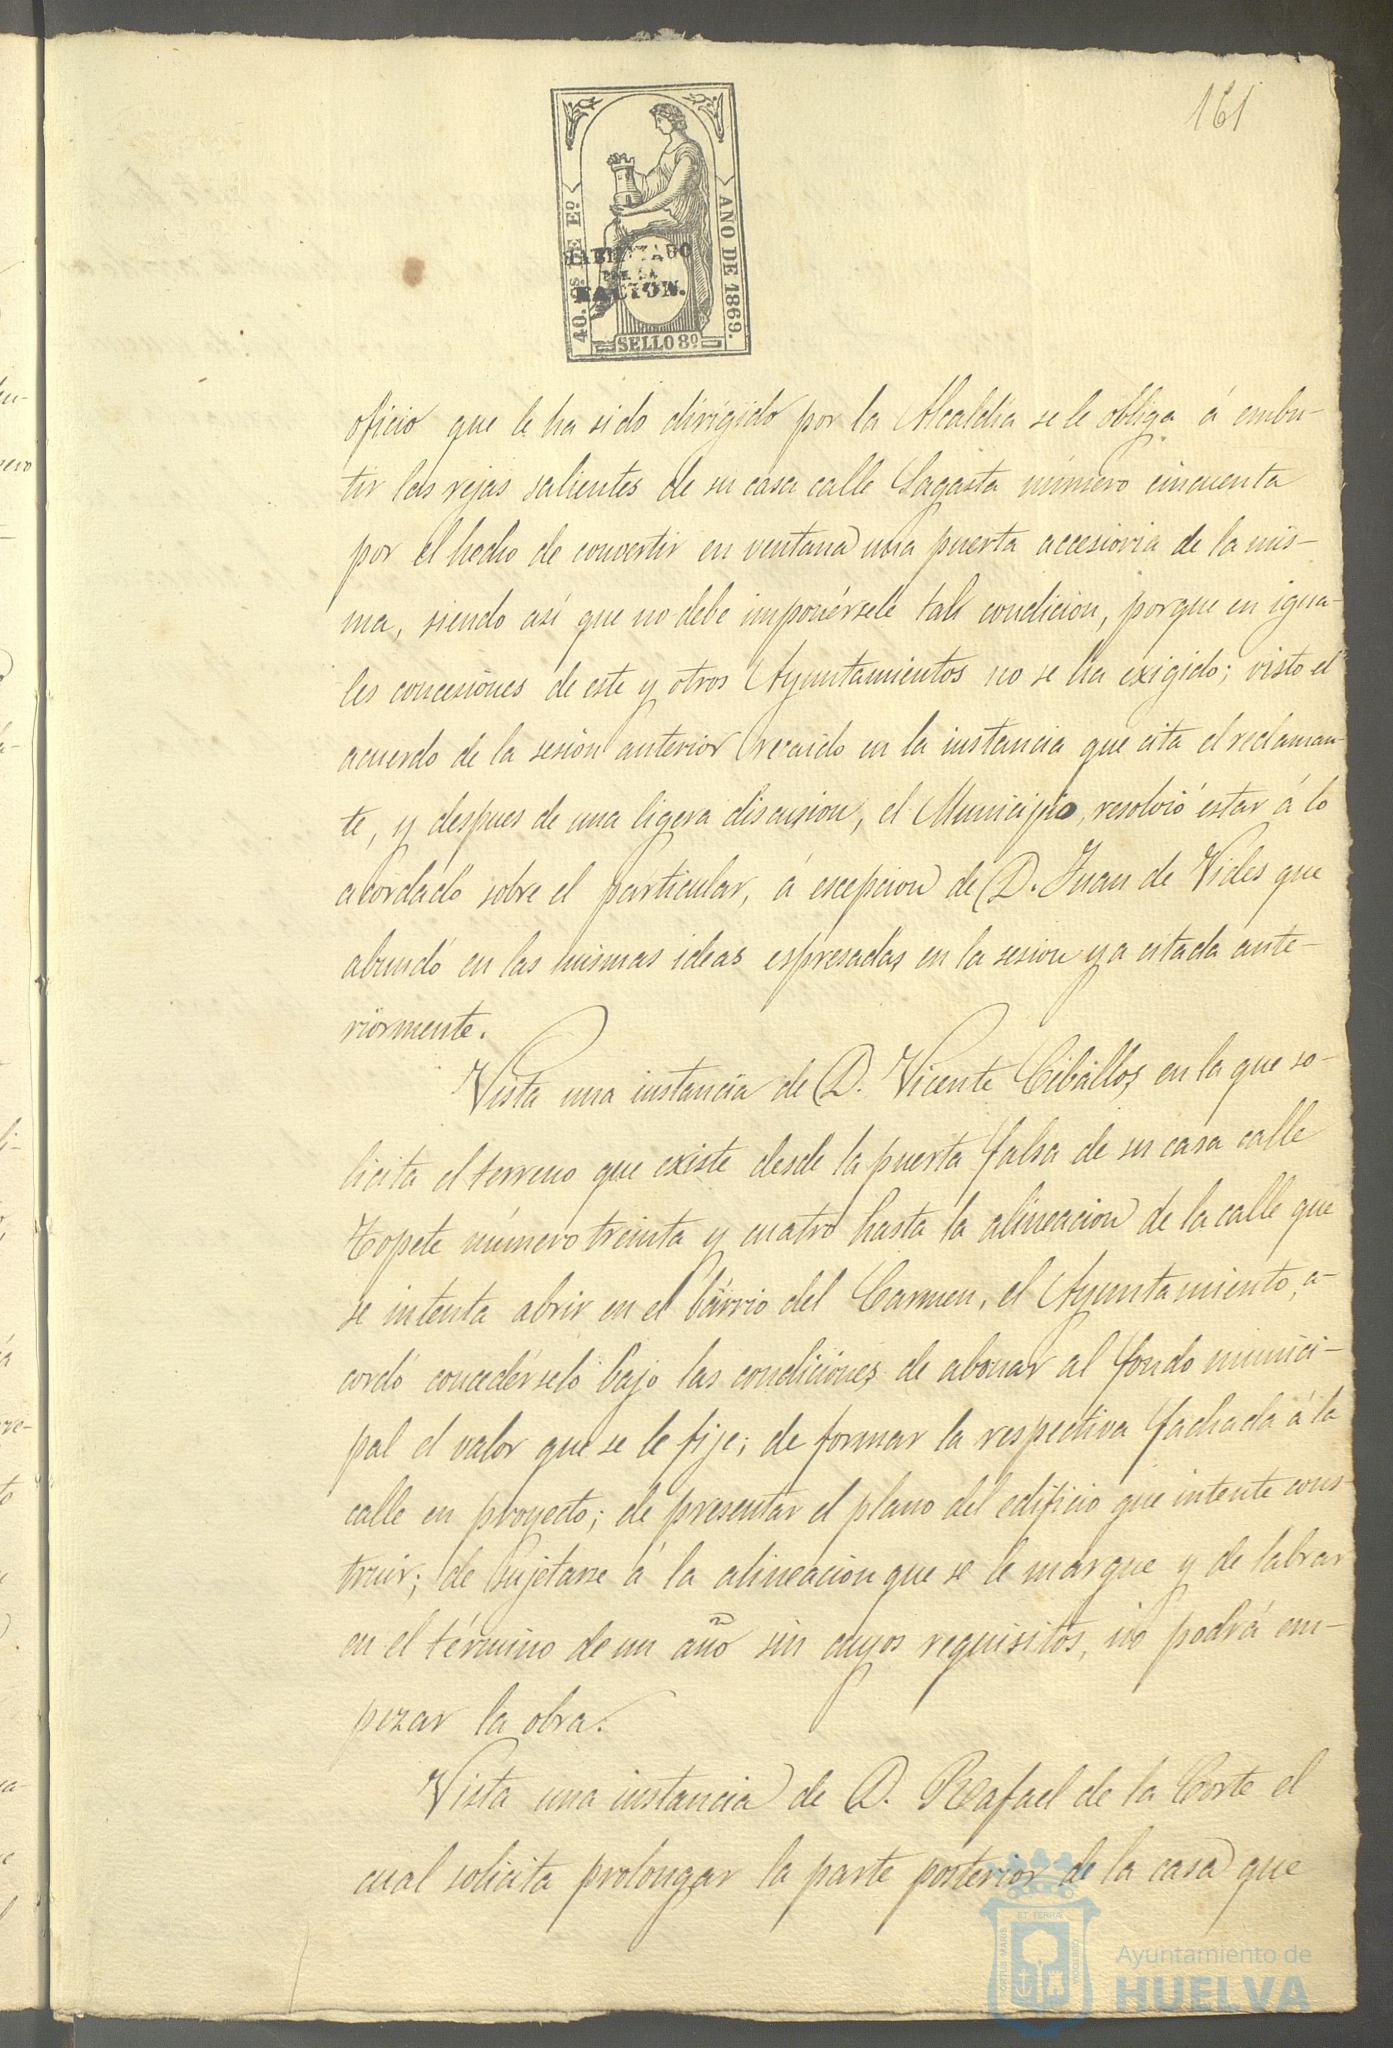 161
AÑO DE 1869.
40. Cs. DE Eº
HABILITADO
POR LA
NACION.
SELLO 8º
oficio que le ha sido dirigido por la Alcaldía se le obliga á embu-
tir las rejas salientes de su casa calle Sagasta número cincuenta
por el hecho de convertir en ventana una puerta accesioria de la mis-
ma, siendo así que no debe imponérsele tal condicion, porque en igua-
les concesiones de este y otros Ayuntamientos no se ha exigido; visto el
acuerdo de la sesion anterior recaido en la instancia que cita el reclaman-
te, y despues de una ligera discusion, el Municipio, resolvió estar á lo
acordado sobre el particular, á escepcion de D. Juan de Vides que
abundó en las mismas ideas espresadas en la sesion ya citada ante-
riormente.
Vista una instancia de D. Vicente Ceballos, en la que so-
licita el terreno que existe desde la puerta falsa de su casa calle
Topete número treinta y cuatro hasta la alineacion de la calle que
se intenta abrir en el barrio del Carmen, el Ayuntamiento, a-
cordó concedérselo bajo las condiciones de abonar al fondo munici-
pal el valor que se le fije; de formar la respectiva fachada á la
calle en proyecto; de presentar el plano del edificio que intente cons-
truir; de sujetarse á la alineacion que se le marque y de labrar
en el término de un año sin cuyos requisitos, no podrá em-
pezar la obra.
Vista una instancia de D. Rafael de la Corte el
cual solicita prolongar la parte posterior de la casa que
Ayuntamiento de
HUELVA